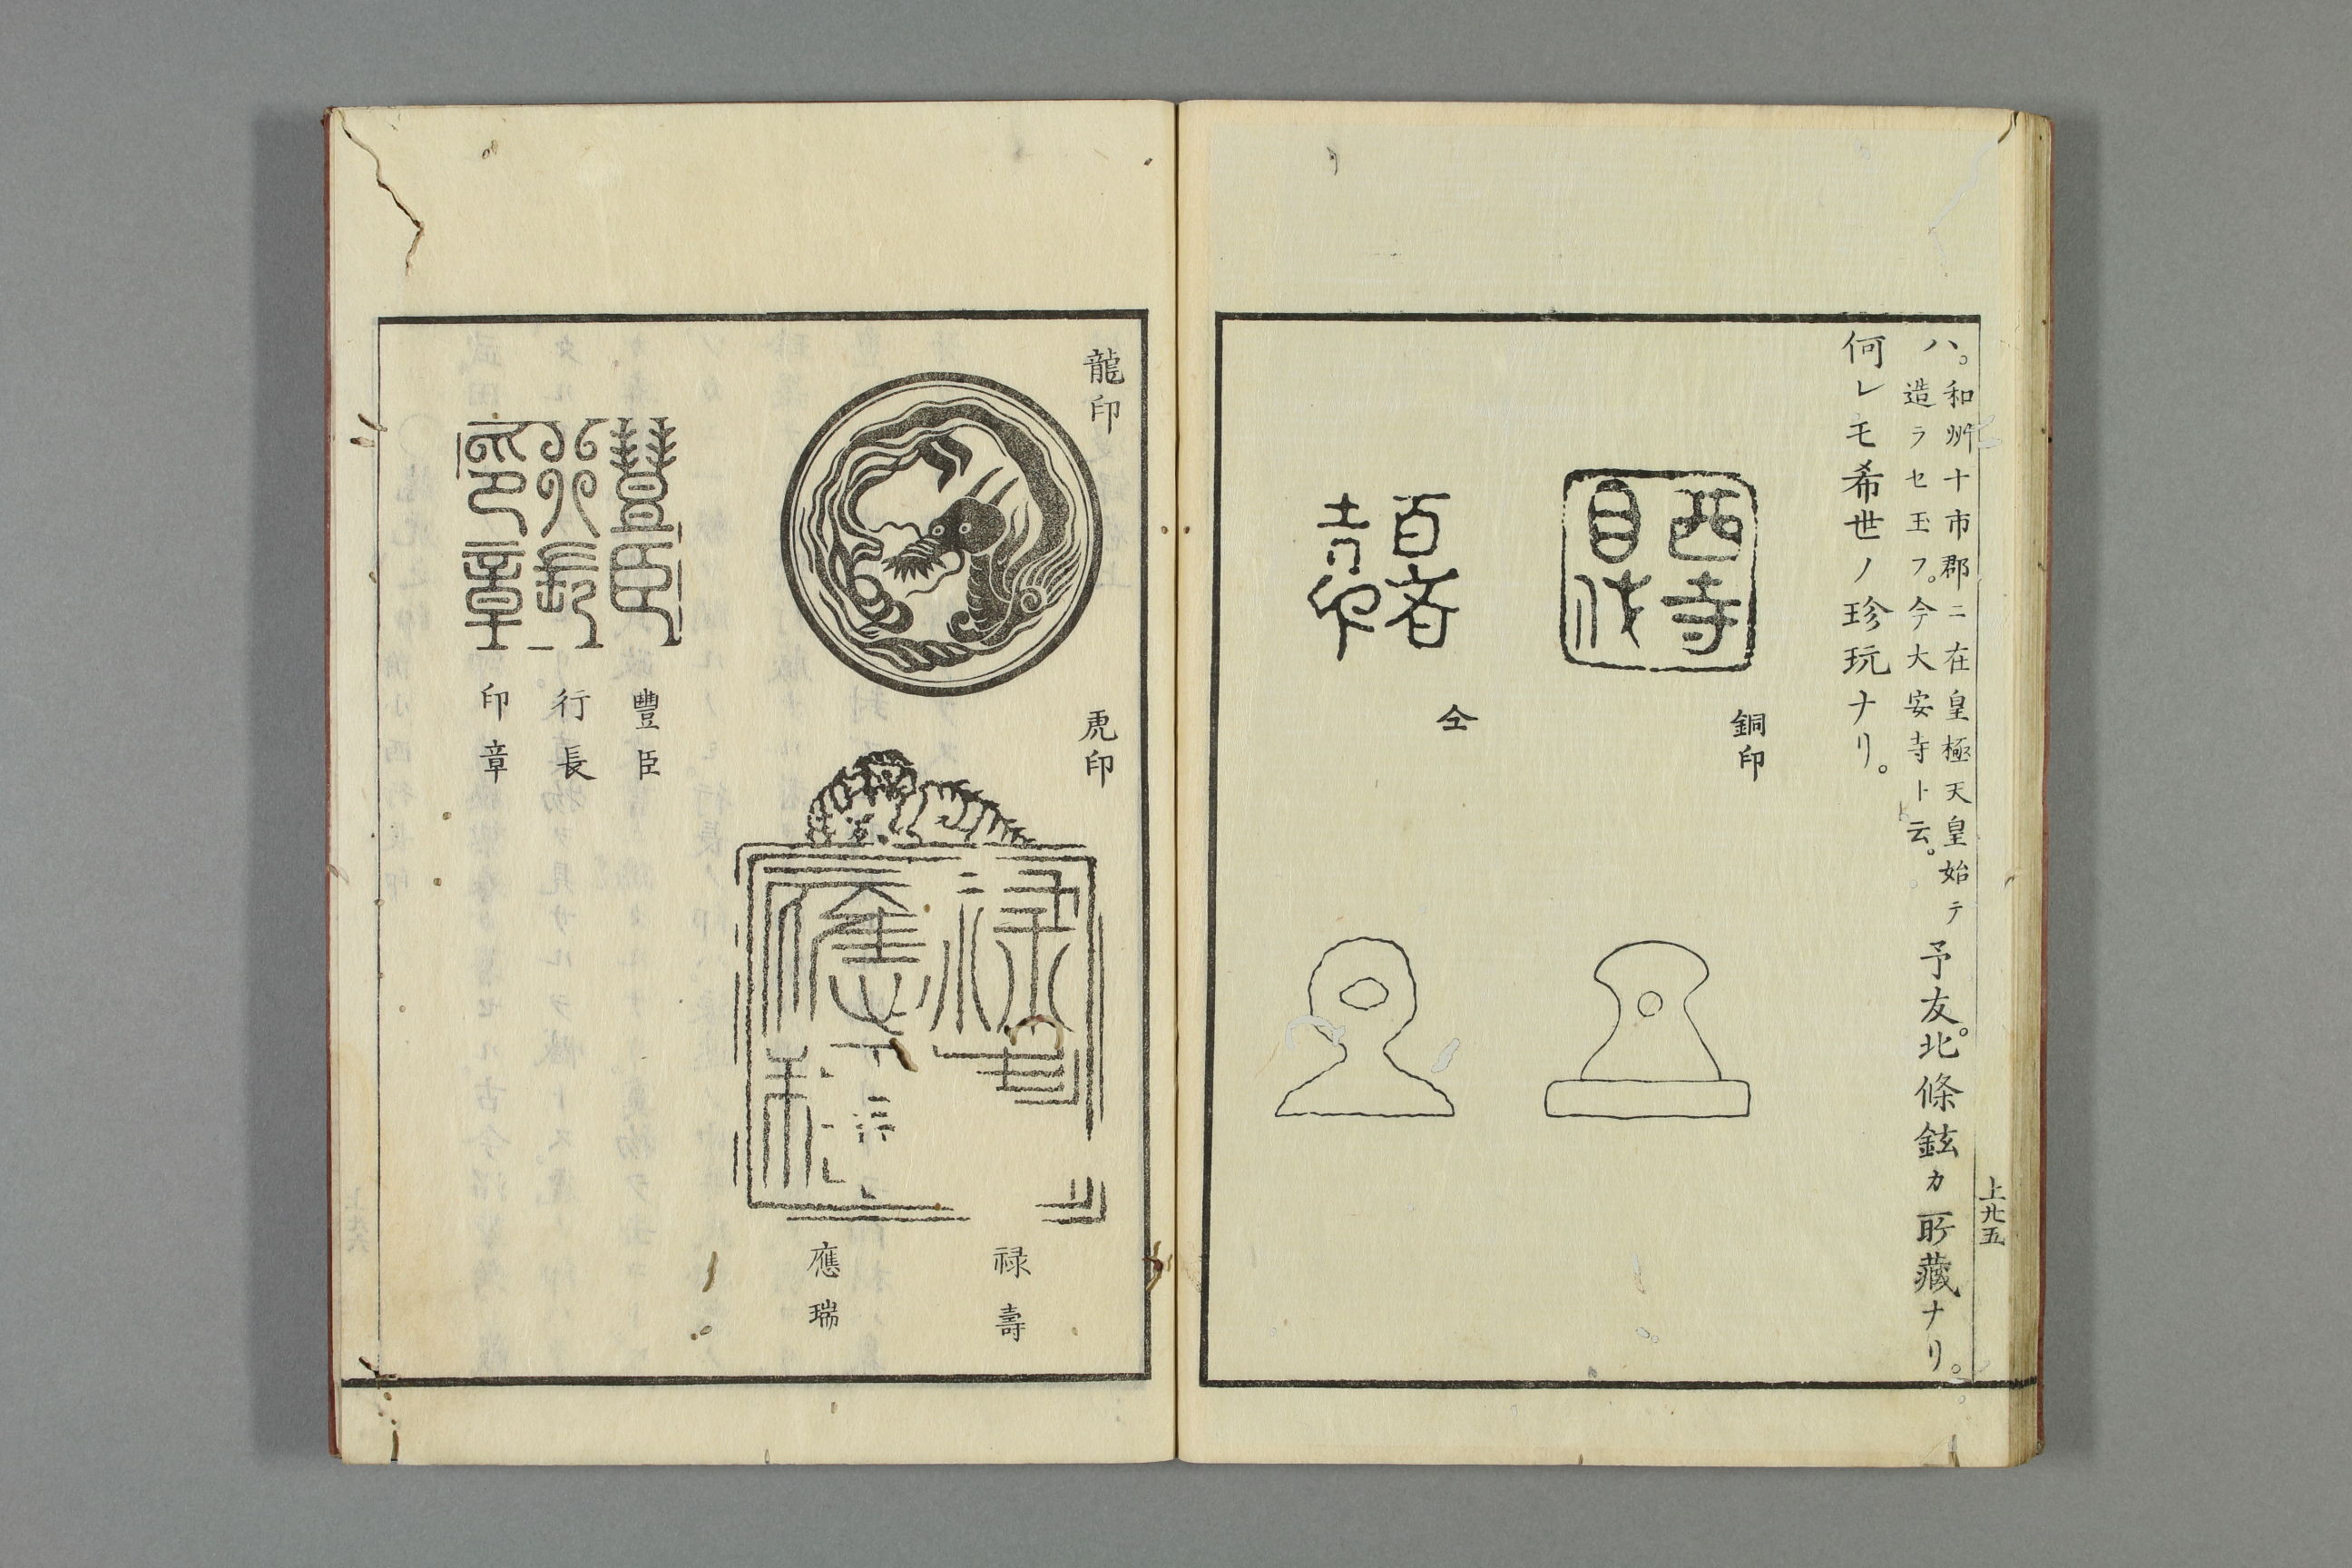 ハ。和州十市郡ニ在皇極天皇始テ
造ラセ玉フ。今大安寺ト云。
予友。北條鉉カ所藏ナリ。
何レモ希世ノ珍玩ナリ。
銅印
西寺
仝
上廿五
龍印
虎印
禄壽
應瑞
豐臣
行長
印章
豐臣
行長
印章